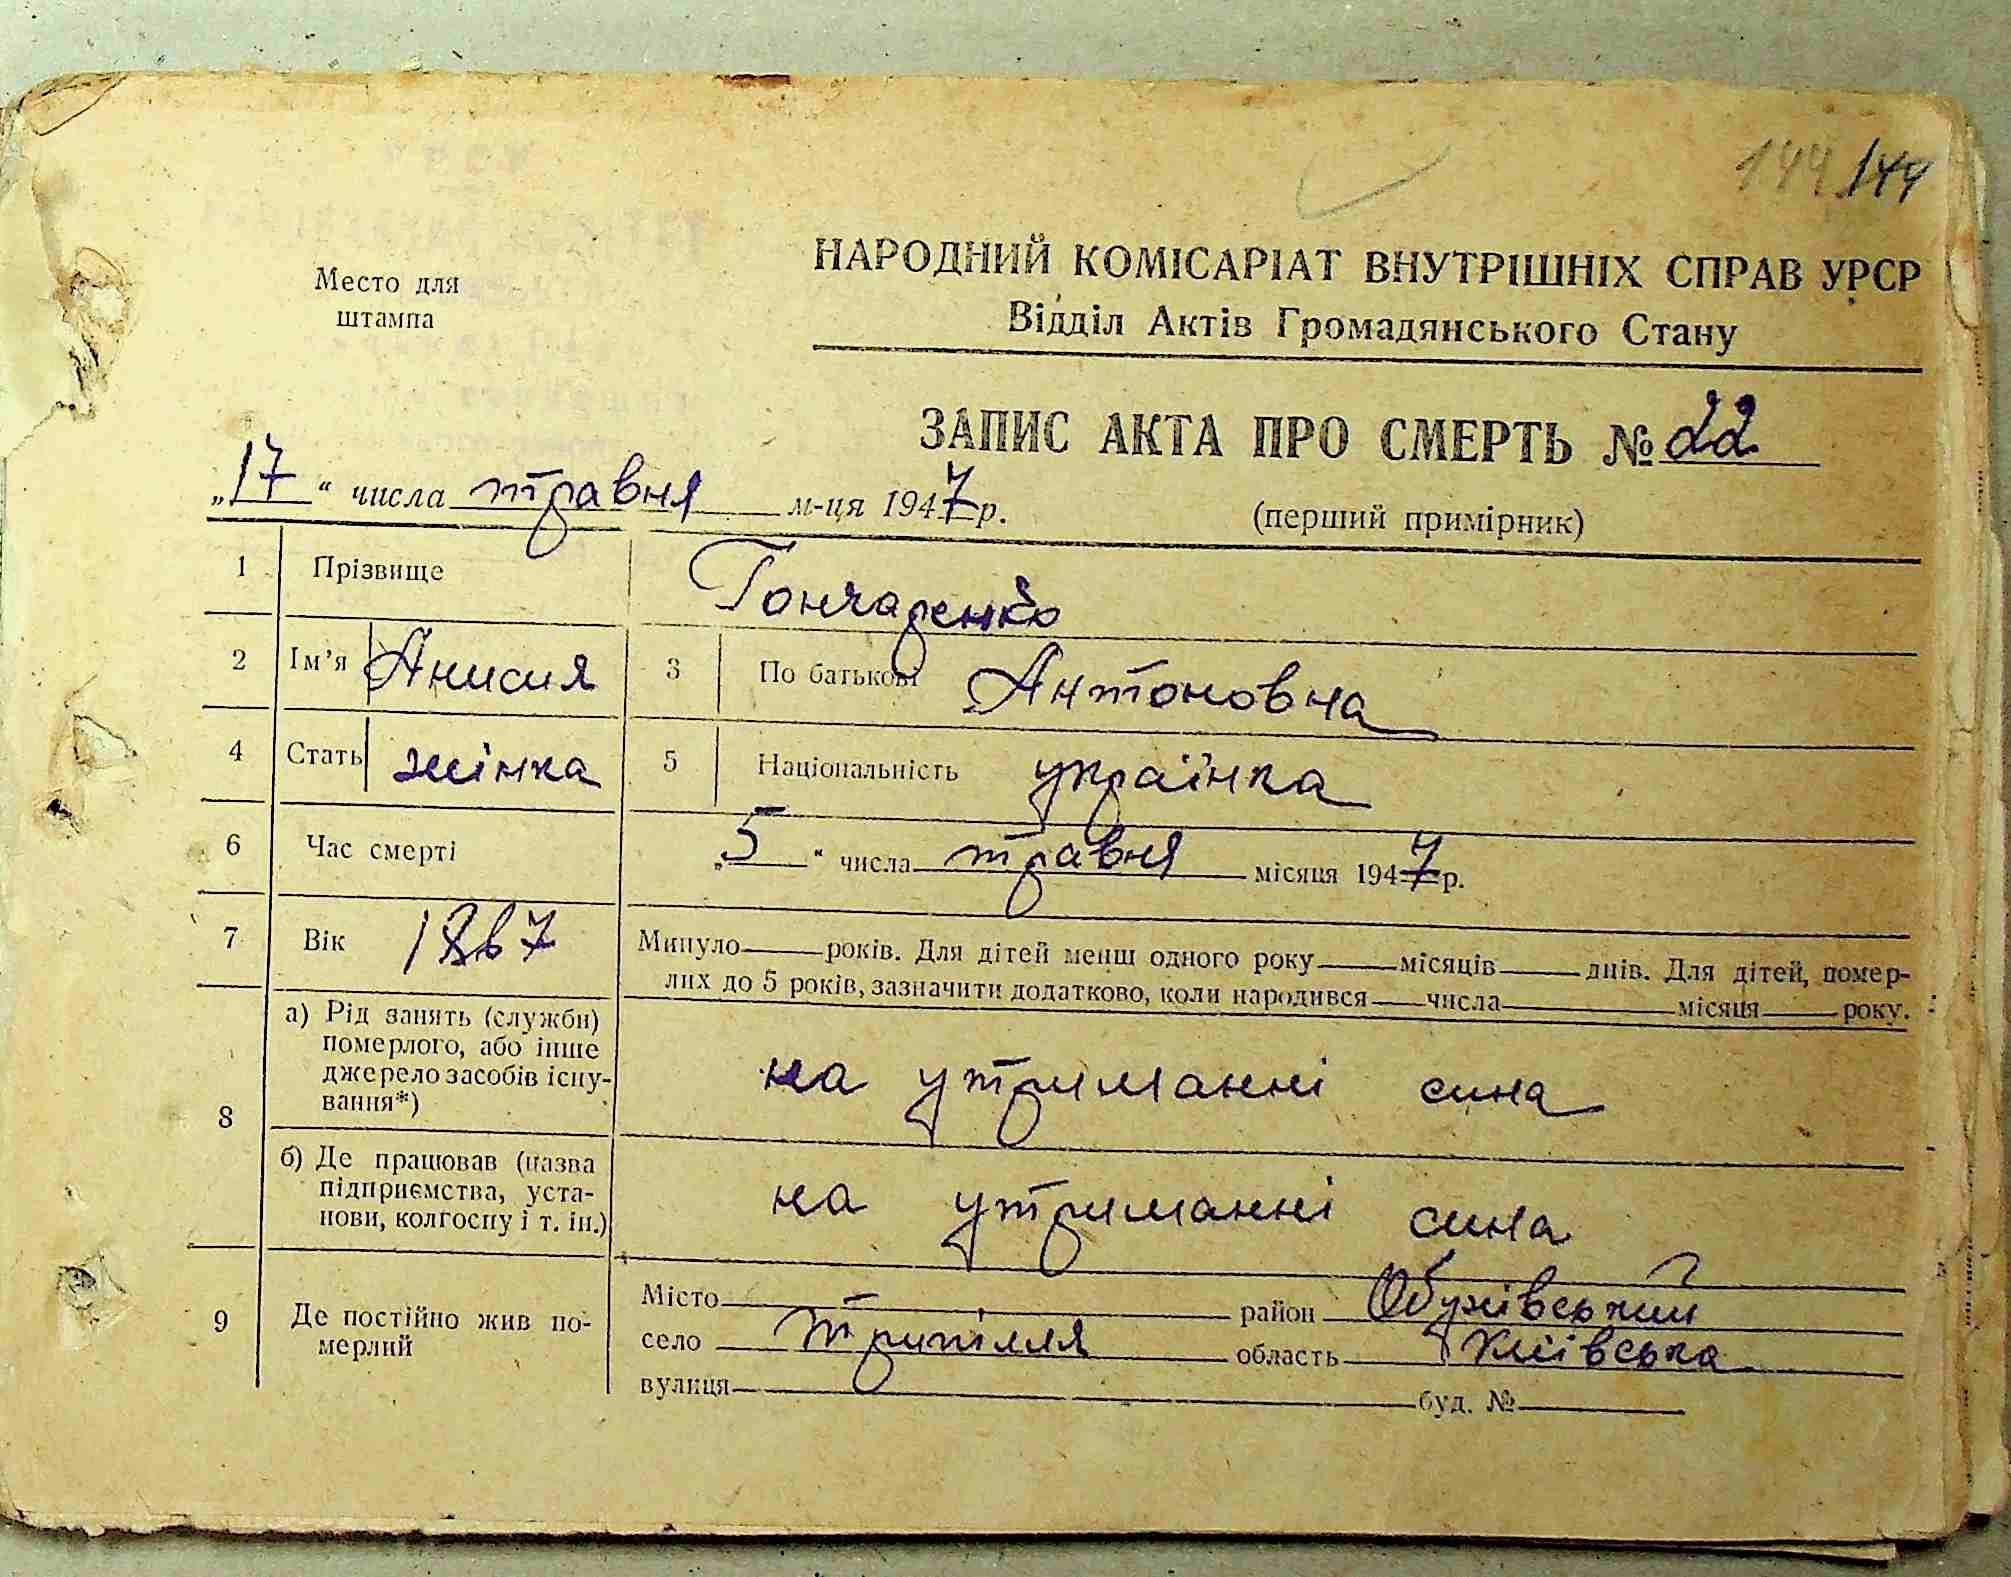 144 144
Место для
штампа
НАРОДНИЙ КОМІСАРІАТ ВНУТРІШНІХ СПРАВ УРСР
Відділ Актів Громадянського Стану
ЗАПИС АКТА ПРО СМЕРТЬ № 22
„17“ числа травня м-ця 1947 р.
(перший примірник)
1 Прізвище Гончаренко
2 Ім’я Анисия 3 По батькові Антоновна
4 Стать жінка 5 Національність українка
6 Час смерті „5“ числа травня місяця 1947 р.
7 Вік 1867 Минуло років. Для дітей менш одного року місяців днів. Для дітей, помер-
лих до 5 років, зазначити додатково, коли народився числа місяця року.
8 а) Рід занять (служби)
померлого, або інше
джерело засобів існу-
вання*)
на утриманні сина
б) Де працював (назва
підприємства, уста-
нови, колгоспу і т. ін.)
на утриманні сина
9 Де постійно жив по-
мерлий
Місто район Обухівський
село Трипілля область Київська
вулиця буд. №